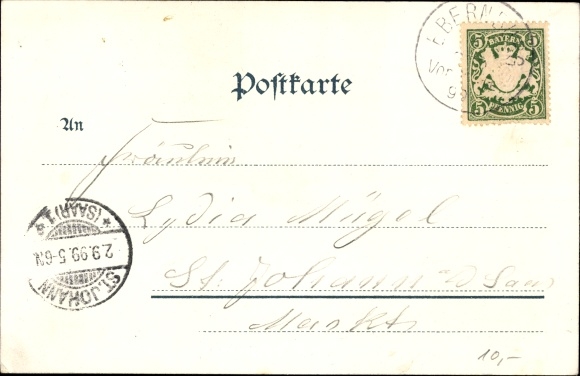 BAYERN
5 5
5 PFENNIG 5
Postkarte
An
Fräulein
Lydia Mügel
St. Johann a/d Saar
Markt
ST. JOHANN
2.9.99. 5-6N.
* (SAAR) 1
10,-